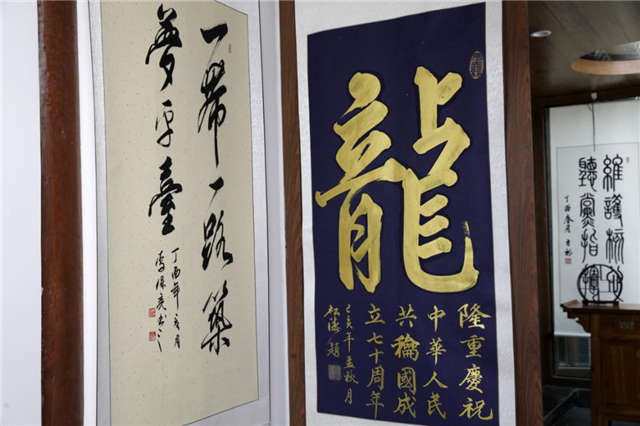 一帶一路築
夢平臺
丁酉年
龍
隆重慶祝
中華人民
共龢國成
立七十周年
己亥年孟秋月
題
維護核心
聽黨指揮
丁酉春月